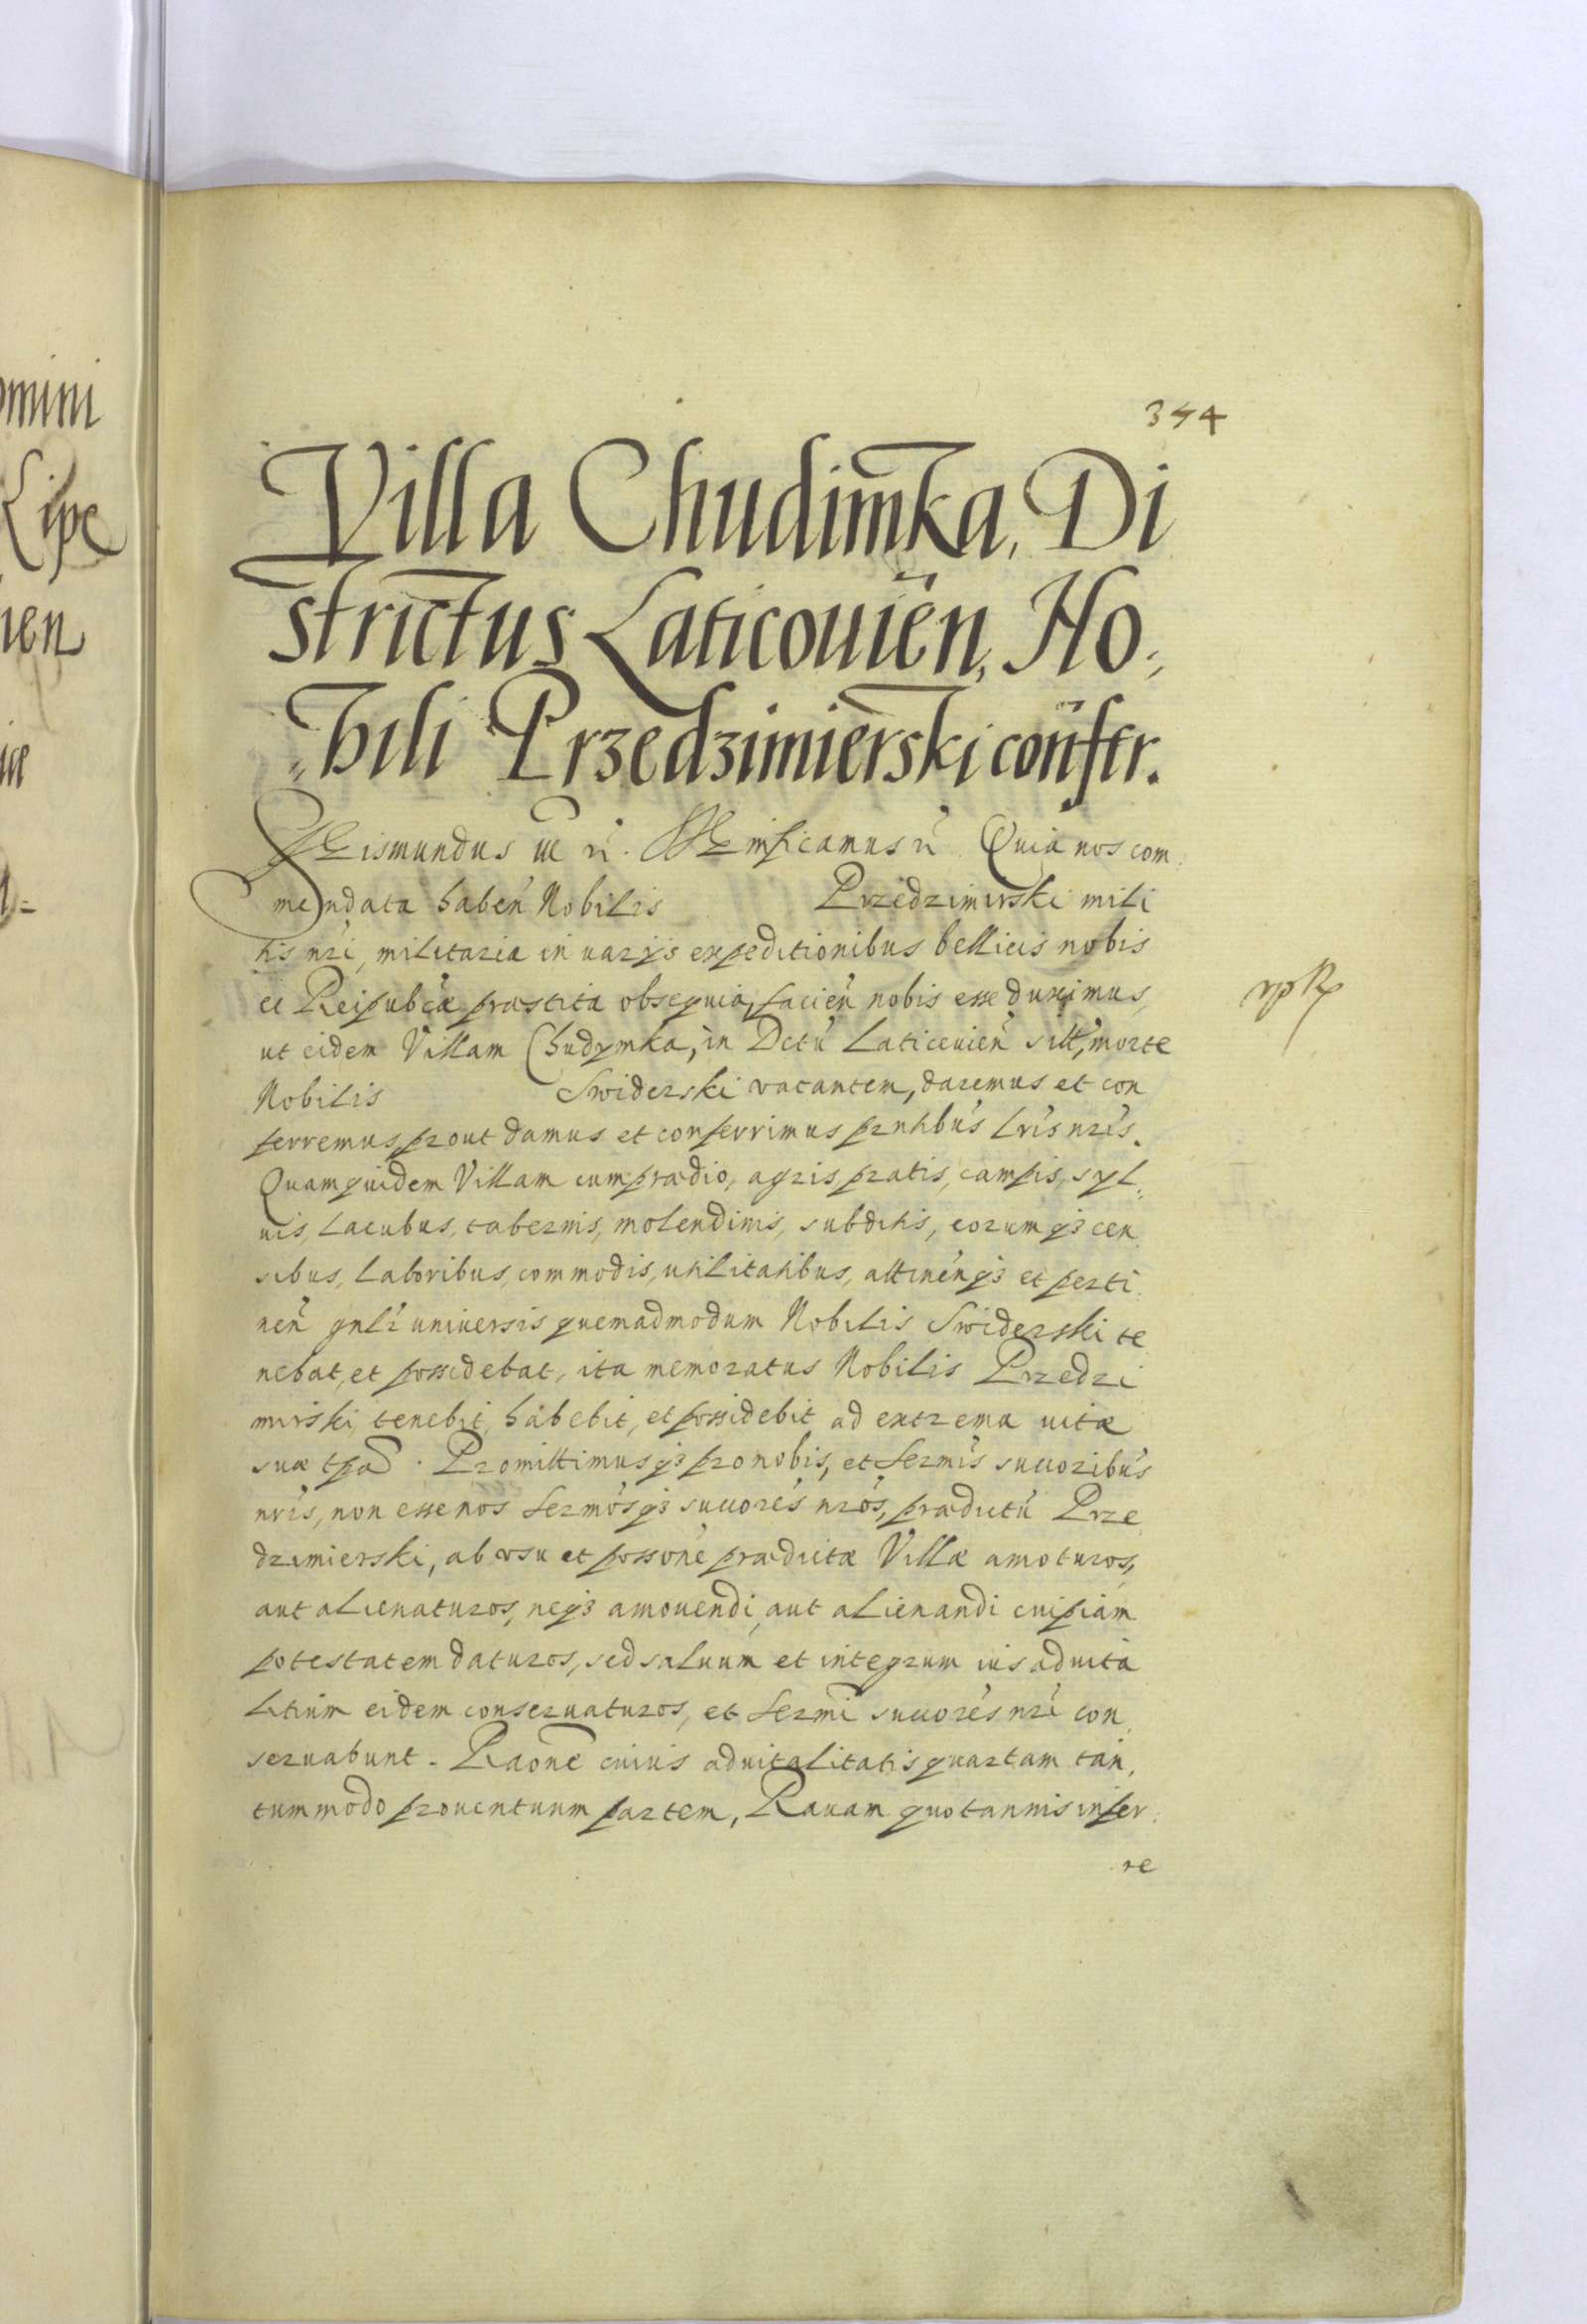 omini
Lipe
nen
344
Villa Chudim̃ka, Di
strictus Laticouień, No:,
„bili Przedzimierski confer.
Sigismundus III ń. Significamus ń Quia nos com
mendata habeń Nobilis Przedzimirski mili
tis nrĩ, militaria in varijs expeditionibus bellicis nobis
et Reipubcæ præstita obsequia, facień nobis esse duximus,
ut eidem Villam Chudymka, in Dctũ Laticeuień sitt, morte
Nobilis Swiderski vacantem, daremus et con
ferremus prout damus et conferrimus prntibus lrĩs nrĩs.
Quamquidem Villam cum prædio, agris pratis, campis, syl„
uis, lacubus, tabernis, molendinis, subditis, eorumqȝ cen
sibus, laboribus, commodis, utilitatibus, attinenqȝ et perti
neñ gnlr universis quemadmodum Nobilis Swiderski te
nebat, et possidebat, ita memoratus Nobilis Przedzi
mirski, tenebit, habebit, et possidebit ad extrema uitæ
suæ tpa. Promittimusqȝ pro nobis, et sermis succoribus
nrĩs, non esse nos sermosqȝ succores nros, prædictũ Prze
dzimierski, ab vsu et possone prædictæ Villæ amoturos,
aut alienaturos, neqȝ amouendi, aut alienandi cuipiam
potestatem daturos, sed saluum et integrum ius aduita
litium eidem conseruaturos, et sermi succores nrĩ con
seruabunt. Raone cuius aduitalitatis quartam tan,
tummodo prouentuum partem, Rauam quotannis infer
re